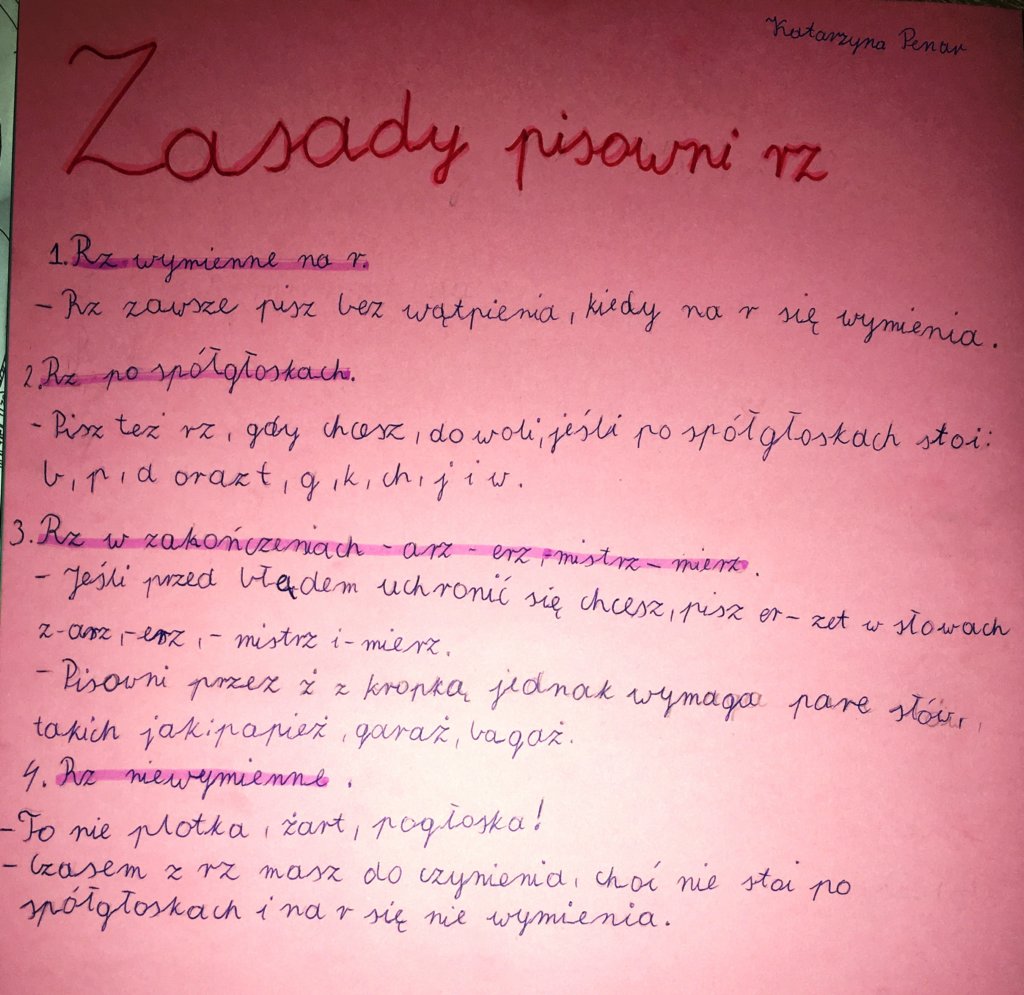 Katarzyna Penar
Zasady pisowni rz
1. Rz wymienne na r.
- Rz zawsze pisz bez wątpienia, kiedy na r się wymienia.
2. Rz po spółgłoskach.
- Pisz też rz, gdy chcesz, do woli, jeśli po spółgłoskach stoi:
b, p, d oraz t, g, k, ch, j i w.
3. Rz w zakończeniach -arz -erz, -mistrz - mierz.
- Jeśli przed błędem uchronić się chcesz, pisz er-zet w słowach
z -arz, -erz, - mistrz i -mierz.
- Pisowni przez ż z kropką jednak wymaga parę słów,
takich jak: papież, garaż, bagaż.
4. Rz niewymienne.
- To nie plotka, żart, pogłoska!
- Czasem z rz masz do czynienia, choć nie stoi po
spółgłoskach i na r się nie wymienia.